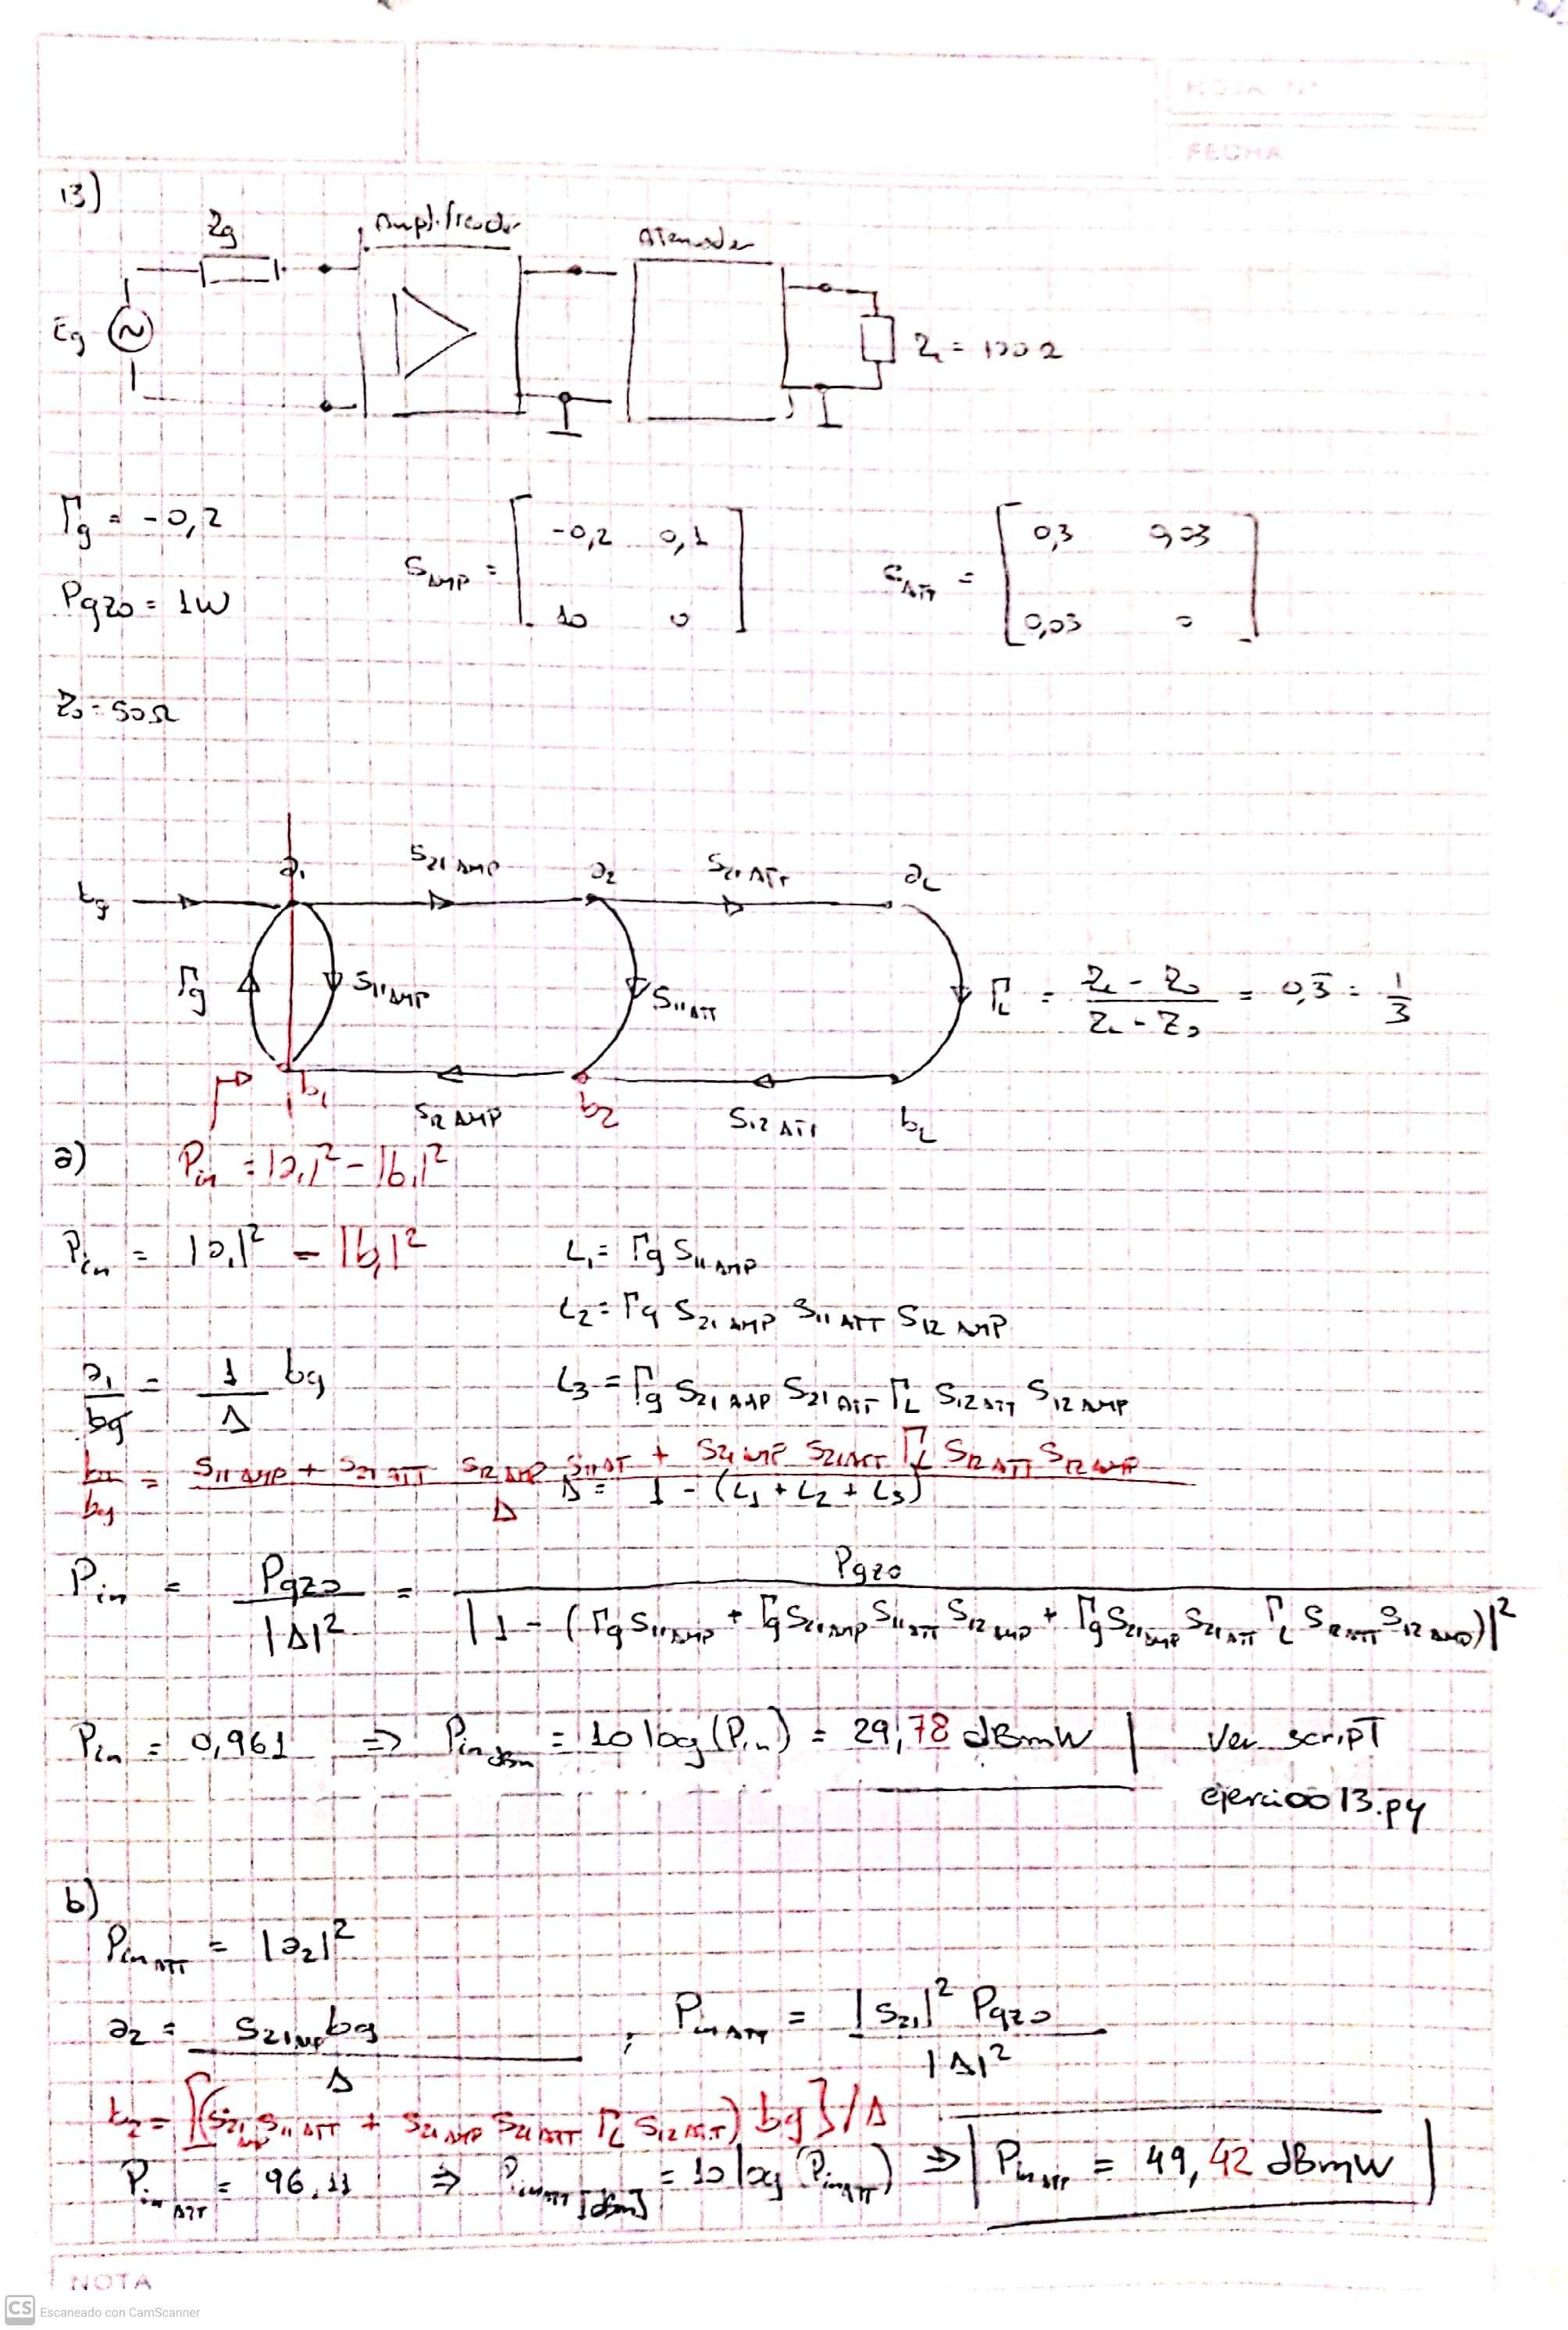 HOJA Nº
FECHA
13)
Zg
Amplificador
Atenuador
Eg
ZL = 100Ω
Γg = -0,2
SAMP = [ -0,2 0,1
10 0 ]
SATT = [ 0,3 0,03
0,03 0 ]
Pgzo = 1W
Z0 = 50Ω
bg
a1
S21 AMP
a2
S21 ATT
aL
Γg
S11 AMP
S11 ATT
ΓL = (ZL - Z0) / (ZL - Z0) = 0,3̄ = 1/3
b1
S12 AMP
b2
S12 ATT
bL
a)
Pin = |a1|² - |b1|²
Pin = |a1|² - |b1|²
L1 = Γg S11 AMP
L2 = Γg S21 AMP S11 ATT S12 AMP
a1/bg = 1/Δ bg
L3 = Γg S21 AMP S21 ATT ΓL S12 ATT S12 AMP
b1/bg = (S11 AMP + S21 ATT S12 AMP S11 AT + S21 AMP S21 ATT ΓL S12 ATT S12 AMP) / Δ
Δ = 1 - (L1 + L2 + L3)
Pin = Pgzo / |Δ|² = Pgzo / |1 - (Γg S11 AMP + Γg S21 AMP S11 ATT S12 AMP + Γg S21 AMP S21 ATT ΓL S12 ATT S12 AMP)|²
Pin = 0,961 ⇒ Pin dBm = 10 log (Pin) = 29,78 dBmW | Ver script
ejercicio 13.py
b)
Pin ATT = |a2|²
a2 = S21 AMP bg / Δ ; Pin ATT = |S21|² Pgzo / |Δ|²
b2 = [(S21 AMP S11 ATT + S21 AMP S21 ATT ΓL S12 ATT) bg] / Δ
Pin ATT = 96,11 ⇒ Pin ATT [dBm] = 10 log (Pin ATT) ⇒ | Pin ATT = 49,42 dBmW |
NOTA
CS Escaneado con CamScanner